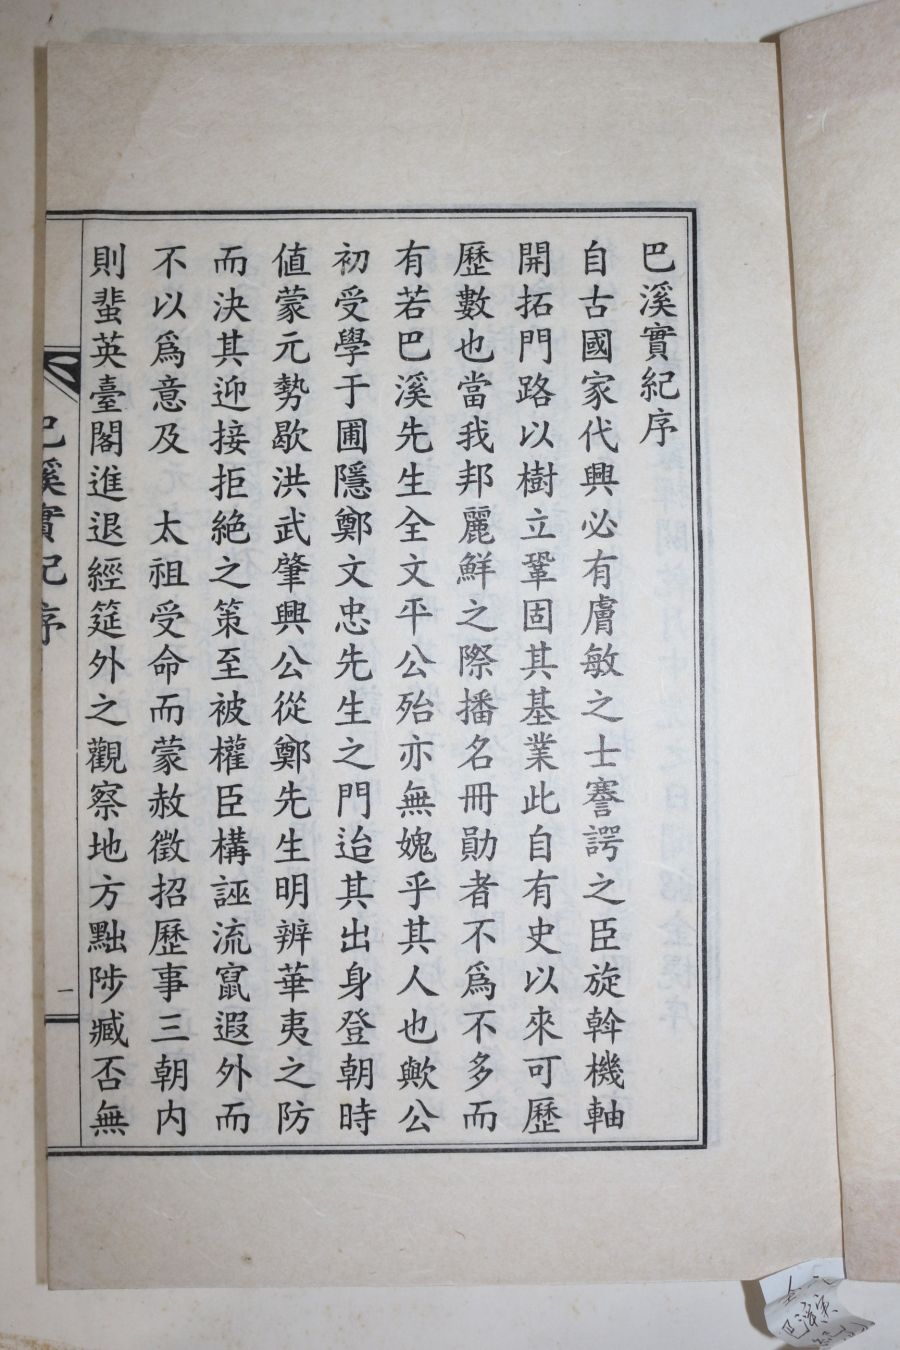 巴溪實紀序
自古國家代興必有膚敏之士謇諤之臣旋斡機軸
開拓門路以樹立鞏固其基業此自有史以來可歷
歷數也當我邦麗鮮之際播名冊勛者不爲不多而
有若巴溪先生全文平公殆亦無媿乎其人也歟公
初受學于圃隱鄭文忠先生之門迨其出身登朝時
値蒙元勢歇洪武肇興公從鄭先生明辨華夷之防
而決其迎接拒絶之策至被權臣構誣流竄遐外而
不以爲意及 太祖受命而蒙赦徵招歷事三朝内
則蜚英臺閣進退經筵外之觀察地方黜陟臧否無
巴溪實紀序
一
巴溪実